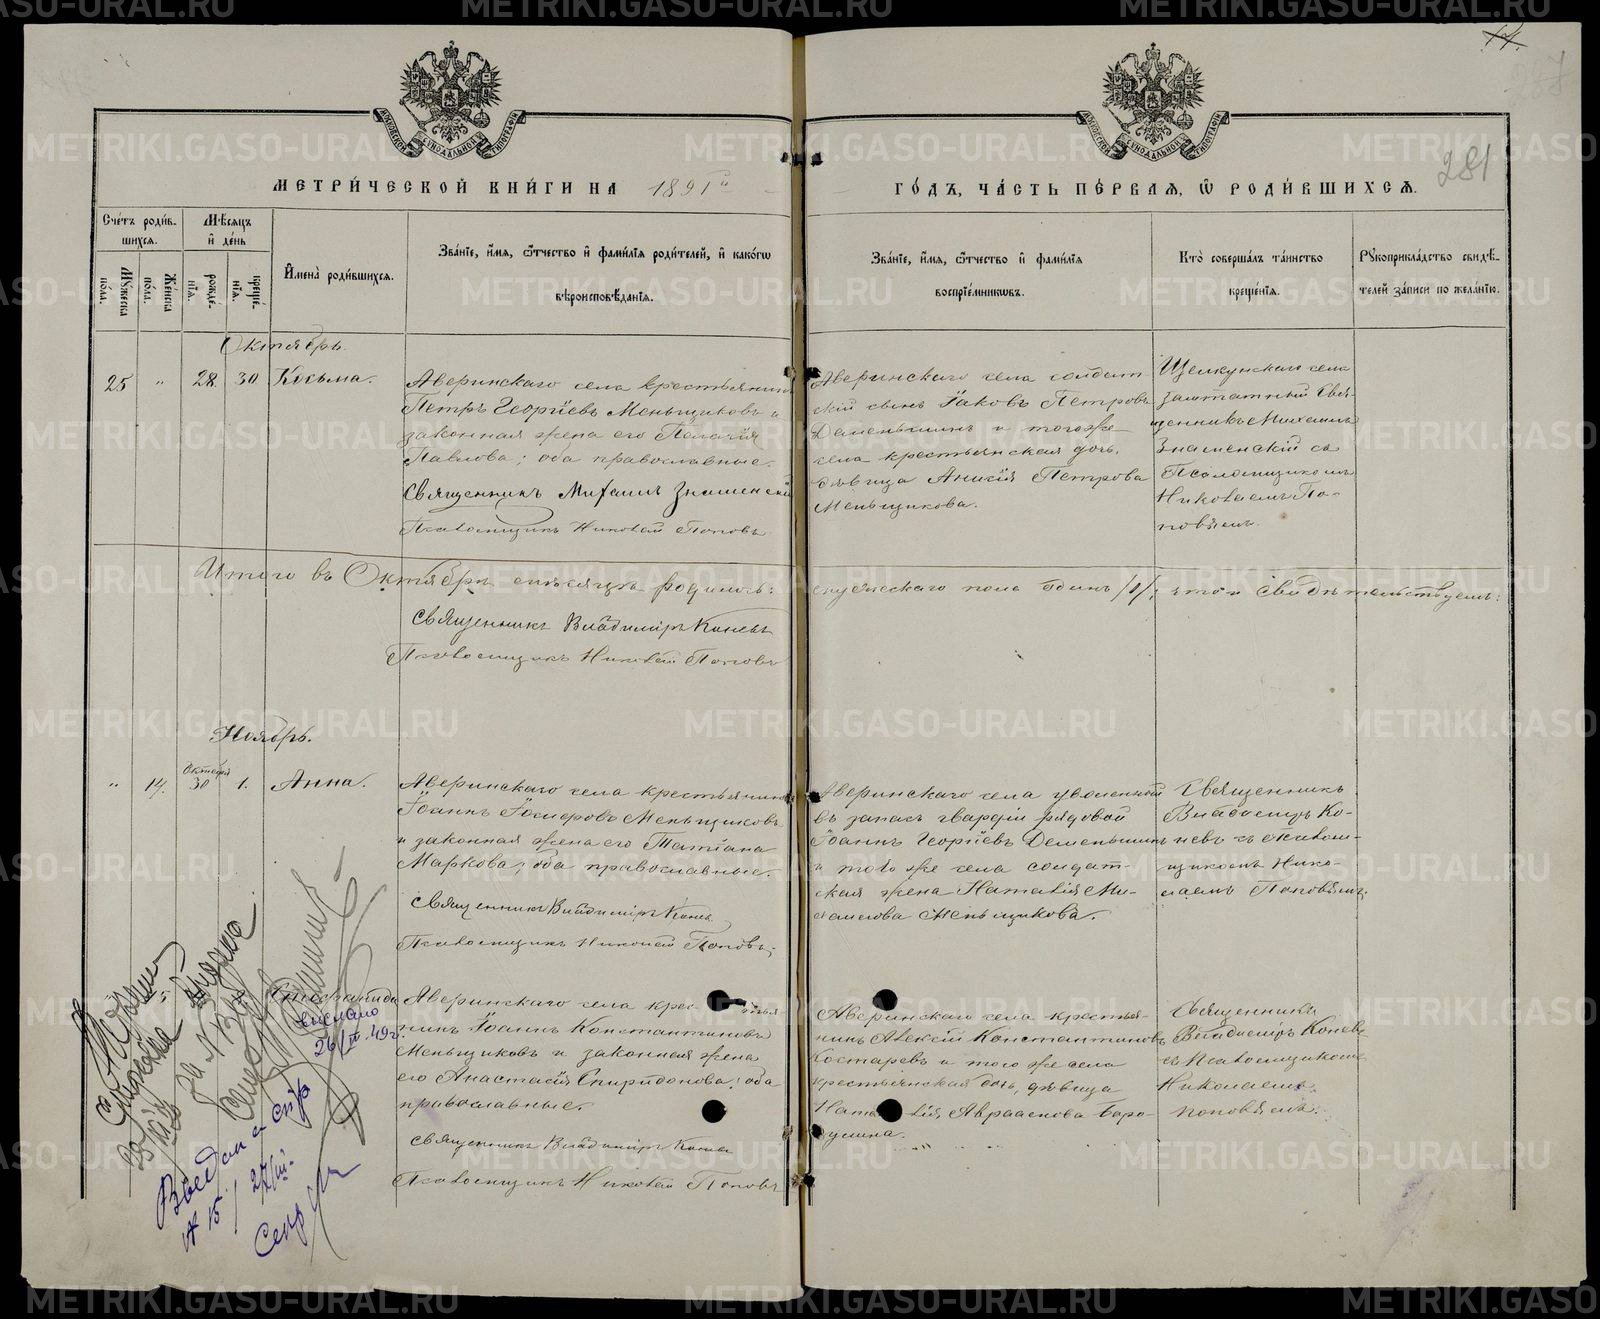 МЕТРИ́ЧЕСКОЙ КНИ́ГИ НА 1891 й
ГО́ДЪ, ЧА́СТЬ ПЕ́РВАЯ, Ѿ РОДИ́ВШИХСЯ.
281
МОСКОВСКОЙ СѴНОДАЛЬНОЙ ТИПОГРАФІИ
МОСКОВСКОЙ СѴНОДАЛЬНОЙ ТИПОГРАФІИ
Счетъ роди́вшихся.
Мꙋжеска по́ла.
Же́нска по́ла.
Мѣсяцъ и҆ де́нь
рожде́нія.
креще́нія.
И҆мена̀ роди́вшихся.
Зва́ніе, и҆́мя, ѻ҆́тчество и҆ фами́лія роди́телей, и҆ како́гѡ
вѣроисповѣ́данія.
Зва́ніе, и҆́мя, ѻ҆́тчество и҆ фами́лія
воспріе́мникѡвъ.
Кто̀ соверша́лъ та́инство
креще́нія.
Рꙋкоприкла́дство свидѣ́-
телей за́писи по жела́нію.
Октябрь.
25 " 28. 30 Козьма.
Аверинскаго села крестьянинъ
Петръ Георгіевъ Меньщиковъ и
законная жена его Пелагія
Павлова; оба православные.
Священникъ Михаилъ Знаменскій
Псаломщикъ Николай Поповъ
Аверинскаго села солдат-
скій сынъ Іаковъ Петровъ
Деменьшинъ и того же
села крестьянская дочь,
дѣвица Анисія Петрова
Меньщикова.
Щелкунскаго села
заштатный Свя-
щенникъ Михаилъ
Знаменскій съ
Псаломщикомъ
Николаемъ По-
повымъ.
Итого въ Октябрѣ мѣсяцѣ родилось:
мужескаго пола одинъ /1/; что и свидѣтельствуемъ:
Священникъ Владиміръ Коневъ
Псаломщикъ Николай Поповъ
Ноябрь.
" 14. Октября 30 1. Анна.
Аверинскаго села крестьянинъ
Іоаннъ Меньщиковъ
и законная жена его Татіана
Маркова; оба православные.
Священникъ Владиміръ Коневъ
Псаломщикъ Николай Поповъ;
Аверинскаго села уволенный
въ запасъ гвардіи рядовой
Іоаннъ Георгіевъ Деменьшинъ
и того же села солдат-
ская жена Наталія Ми-
хаилова Меньщикова.
Священникъ
Владиміръ Ко-
невъ съ Псалом-
щикомъ Нико-
лаемъ Поповымъ;
Аверинскаго села крестья-
нинъ Іоаннъ Константиновъ
Меньщиковъ и законная жена
его Анастасія Спиридонова; оба
православные.
Священникъ Владиміръ Коневъ
Псаломщикъ Николай Поповъ
Аверинскаго села крестья-
нинъ Алексій Константиновъ
Костаревъ и того же села
крестьянская дочь, дѣвица
Наталія Авраамова Боро-
дулина.
Священникъ
Владиміръ Коневъ
съ Псаломщикомъ
Николаемъ
Поповымъ.
выслано